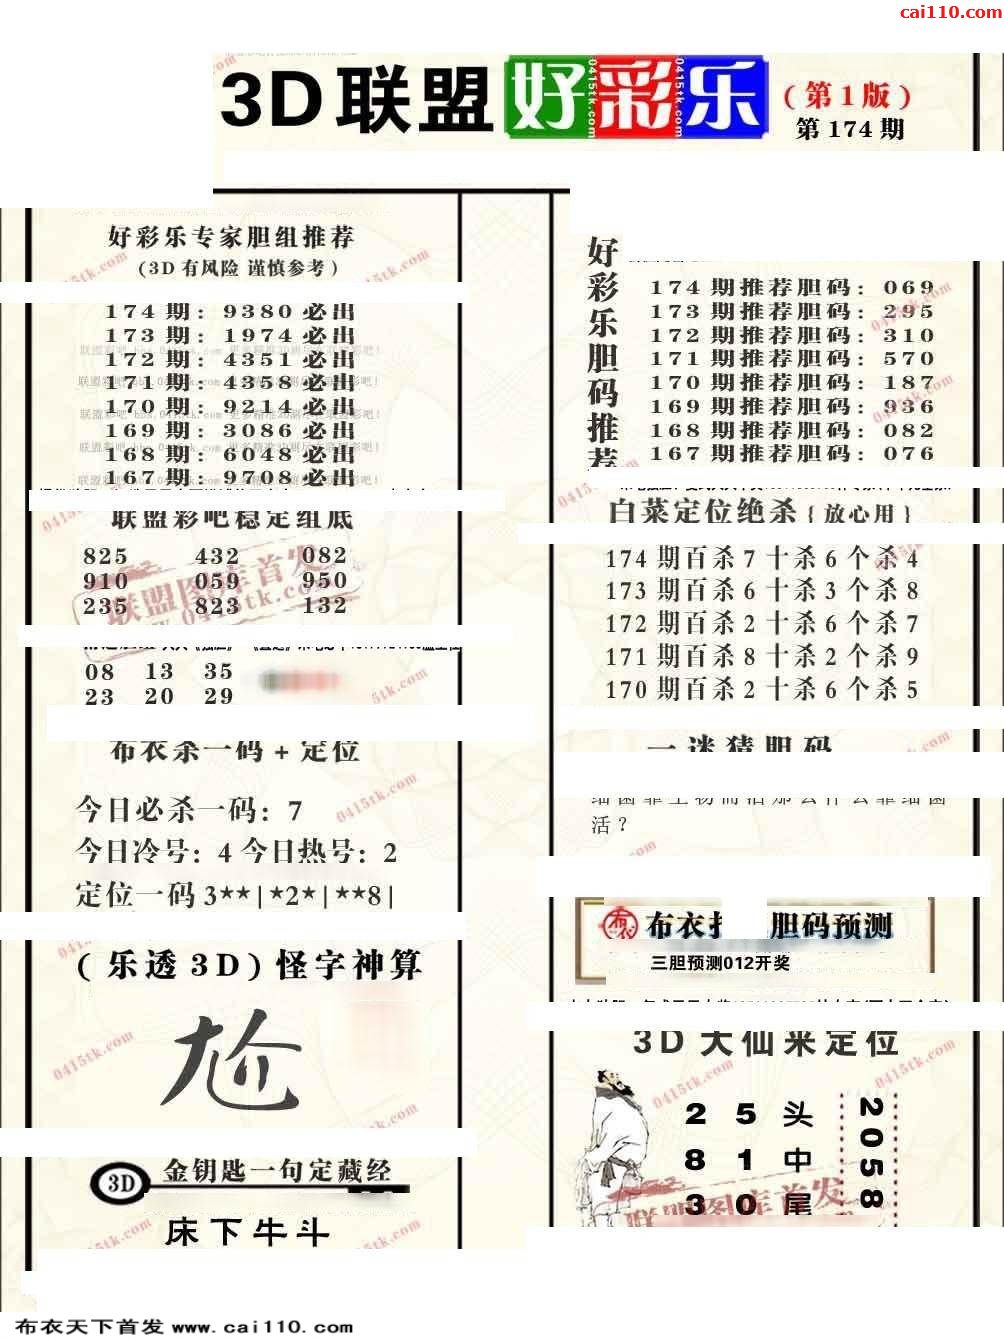 cai110.com
3D联盟好彩乐
(第1版)
第174期
好彩乐专家胆组推荐
(3D有风险 谨慎参考)
174期: 9380必出
173期: 1974必出
172期: 4351必出
171期: 4358必出
170期: 9214必出
169期: 3086必出
168期: 6048必出
167期: 9708必出
联盟彩吧稳定组底
825 432 082
910 059 950
235 823 132
08 13 35
23 20 29
布衣杀一码+定位
今日必杀一码: 7
今日冷号: 4 今日热号: 2
定位一码 3**|*2*|**8|
(乐透3D)怪字神算
尬
3D 金钥匙一句定藏经
床下牛斗
好彩乐胆码推荐
174期推荐胆码: 069
173期推荐胆码: 295
172期推荐胆码: 310
171期推荐胆码: 570
170期推荐胆码: 187
169期推荐胆码: 936
168期推荐胆码: 082
167期推荐胆码: 076
白菜定位绝杀{放心用}
174期百杀7十杀6个杀4
173期百杀6十杀3个杀8
172期百杀2十杀6个杀7
171期百杀8十杀2个杀9
170期百杀2十杀6个杀5
一迷猜胆码
活?
布衣 胆码预测
三胆预测012开奖
3D大仙来定位
2 5 头
8 1 中
3 0 尾
2058
联盟图库首发
www.0415tk.com
布衣天下首发 www.cai110.com